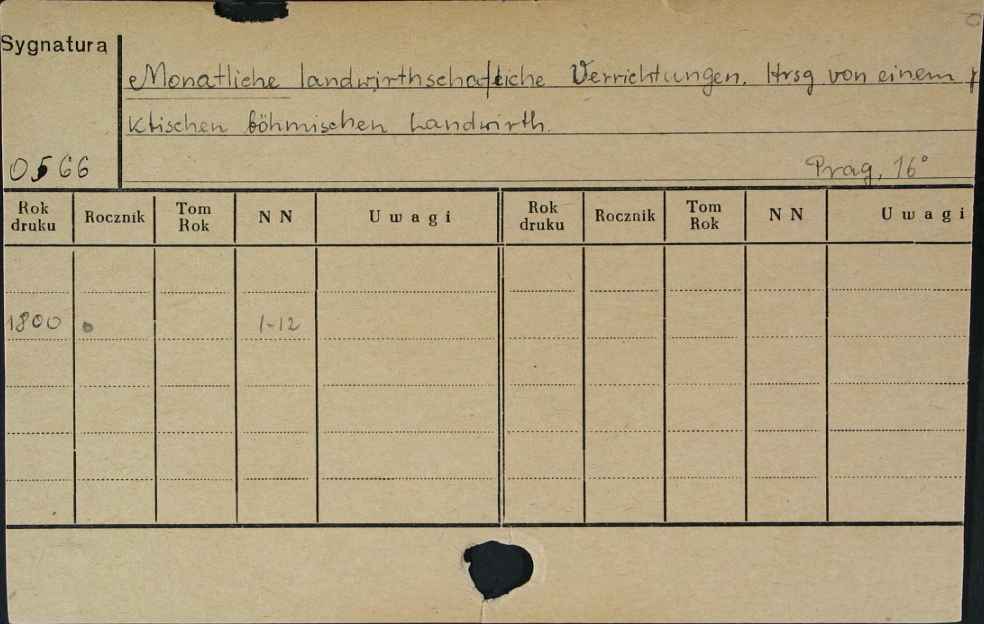 Sygnatura
Monatliche landwirthschaftliche Verrichtungen. Hrsg von einem
ktischen böhmischen Landwirth.
0566
Prag, 16°
Rok druku Rocznik Tom Rok NN Uwagi Rok druku Rocznik Tom Rok NN Uwagi
1800 1-12